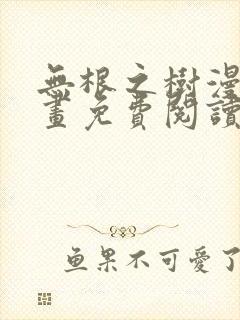 無根之樹漫
畫免費閱讀
鱼果不可愛了